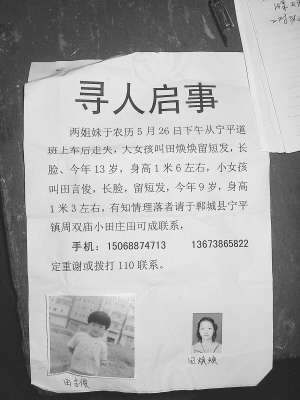 寻人启事
两姐妹于农历5月26日下午从宁平道
班上车后走失，大女孩叫田焕焕留短发，长
脸、今年13岁，身高1米6左右，小女孩
叫田言俊，长脸，留短发，今年9岁，身高
1米3左右，有知情理落者请于郸城县宁平
镇周双庙小田庄田可成联系，
手机：15068874713 13673865822
定重谢或拨打110联系。
田言俊
田焕焕